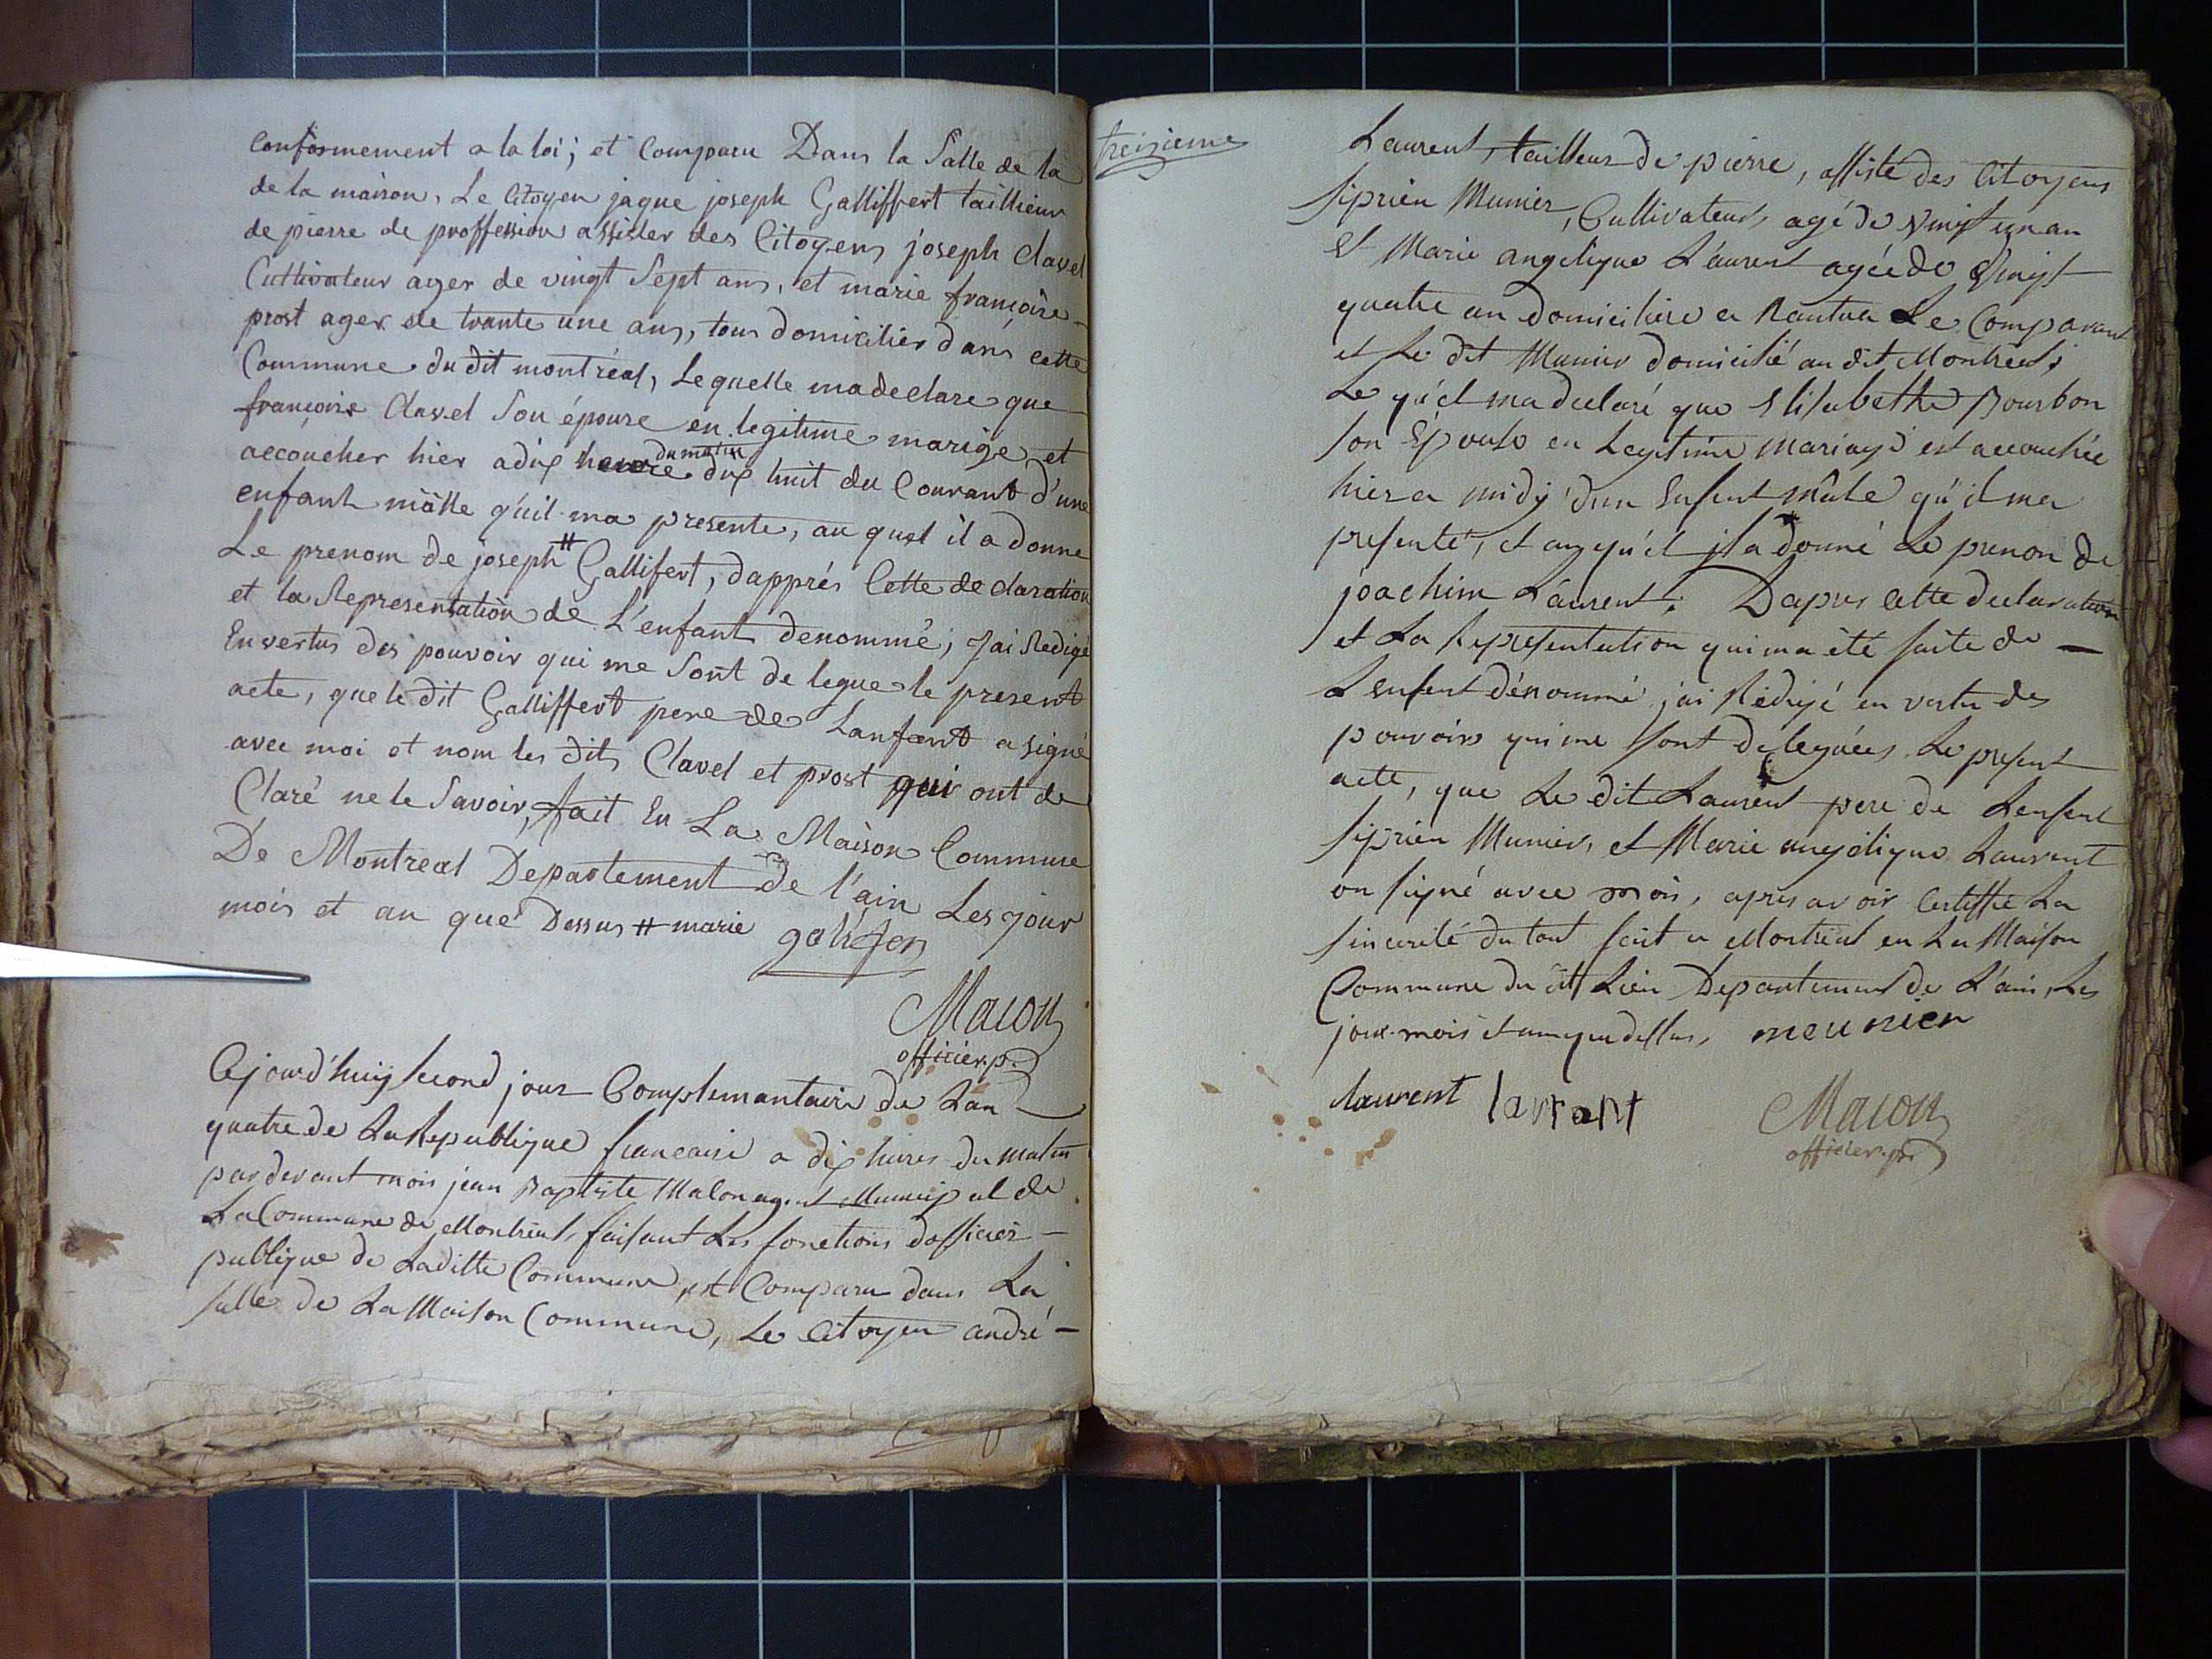 Conformement a la loi; et Comparu Dans la Salle de la
de la maison. Le Citoyen jaque joseph Galliffert taillieur
de pierre de proffession assister des Citoyens joseph Clavel
Cultivateur ager de vingt Sept ans, et marie françoise
prost ager de trante une ans, tous domicilier dans cette
Commune du dit montréal, Lequelle ma declare que
françoise Clavel Son épouse en legitime marige, et
du matin
accoucher hier a dix heure dix huit du Courant d'une
enfant mâlle qu'il ma presente, au quel il a donne
Le prenom de joseph # Gallifert, dapprés Cette declaration
et la Representation de L'enfant denommé, Jai Redigé
En vertus des pouvoir qui me Sont delegue le present
acte, que le dit Galliffert pere de Lanfant a signé
avec moi et nom les dits Clavel et prost qui ont de
Claré ne le Savoir, fait En La Maison Commune
De Montreal Departement de l'ain Les Jour
mois et an que Dessus # marie galifer
Macon
officier. p.
Cejourd'huy second jour Complemantaire de Lan
quatre de La Republique francaise a dix heures du matin
par devant mois jean Baptiste Malon agent Municipal de
La Commune de Montréal, faisant Les fonctions dofficier
publique de Laditte Commune, est Comparu dans La
salle de La Maison Commune, Le Citoyen andré
treizieme
Laurent, tailleur de pierre, assisté des Citoyens
siprien Munier, Cultivateur, agé de vingt un an
Et Marie angelique Laurent agée de Vingt
quatre an domicilière a Nantua Le Comparant
et Le dit Munier domicilié au dit Montréal;
Le qu'el ma declaré que Elisabethe Bourbon
son Epouse en Legitime mariage est accouchée
hier a midy d'un Enfent mâle qu'il ma
presenté, et auqu'el jl a donné Le prenon de
joachim Laurent. Dapres Cette declaration
et La Representation qui ma été faite de
Lenfent dénommé jai Rédigé en vertu des
pouvoirs qui me sont deleguées Le present
acte, que Le dit Laurent pere de Lenfent
siprien Munier, et Marie angelique Laurent
on signé avec mois, apres avoir Certiffié La
sincerité du tout fait a Montréal en La Maison
Commune du dit Lieu Departement de L'ain, Les
jour mois et an que dessus, meunier
laurent larrant
Macon
officier. p.